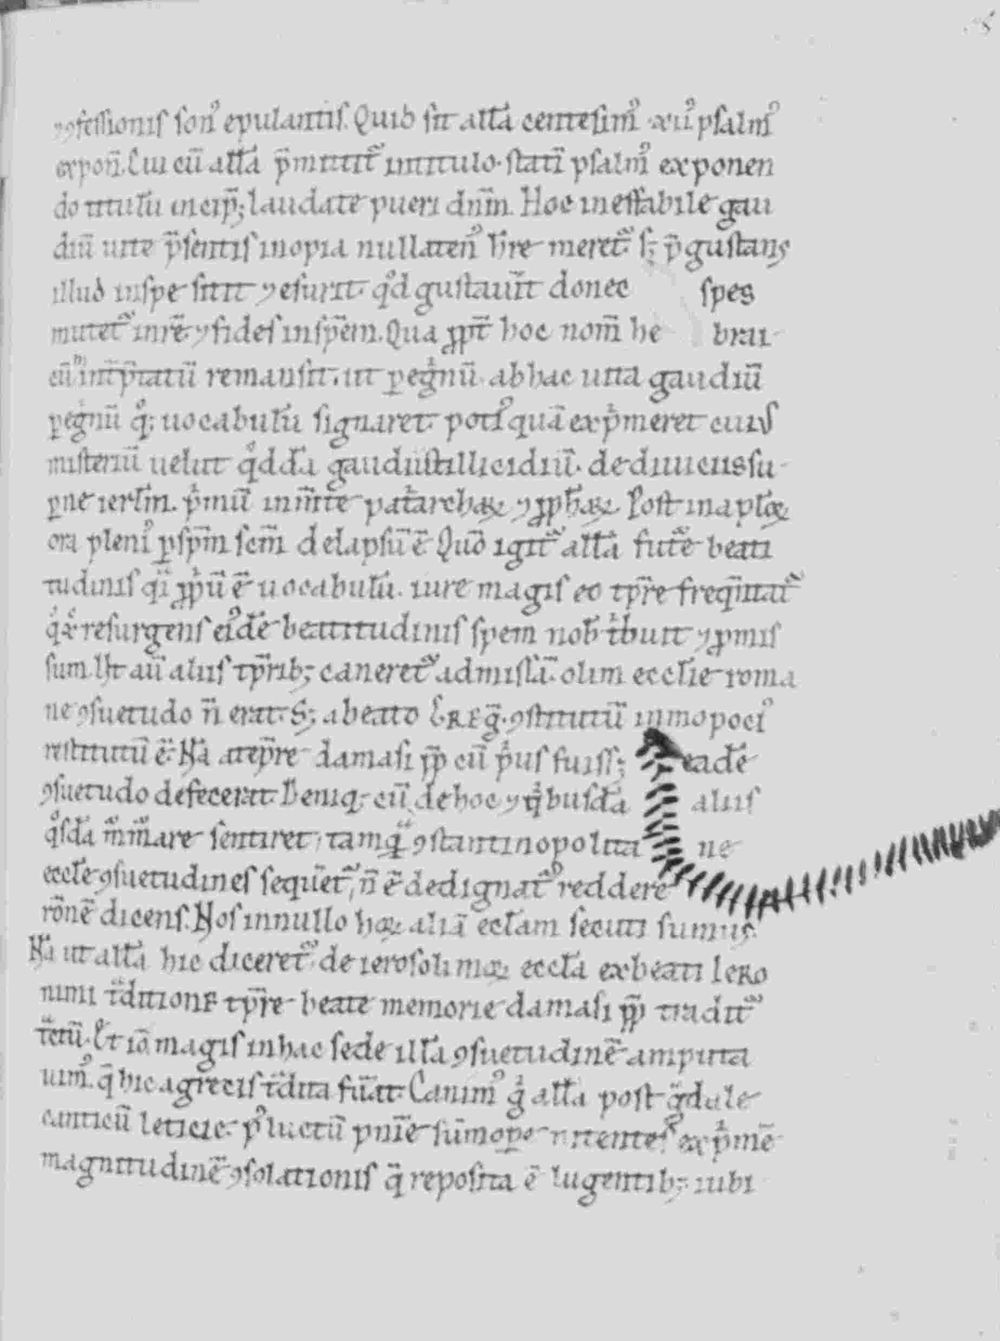 ꝯfessionis son᷒ epulantis. Quid sit all̃a centesim᷒ xii᷒ psalm᷒
expon̄. Cui cū all̃a p̄mittit᷑ intitulo. stati᷑ psalm᷒ exponen
do titulū incip̄; laudate pueri dn̄m. Hoc ineffabile gau
diū uite p̄sentis inopia nullaten᷒ h̄re meret᷑ s; p̄gustans
illud inspe sitit ⁊ esurit. qd̊ gustauit donec spes
mutet᷑ inrē ⁊ fides inspēm. Qua ꝓpt̄ hoc nom̄ he brai
cū int̄p̄tatū remansit. ut ꝑegnū abhac uita gaudiū
ꝑegnū q; uocabulū signaret. poti᷒ quā exp̍meret cuius
misteriū uelut qd̊dā gaudii stillicidiū. de diuiciis su
ꝑne ierlm̄. p̍mū inm̄te pat̍archaꝝ ⁊ ꝓphaꝝ. Post in aplōꝝ
ora pleni᷒ ꝑ sp̄m scm̄ delapsū ē. Quō igit᷑ all̃a fut̄e beati
tudinis qi ꝓpū ē uocabulū. iure magis eo tp̄re freq̄ntat᷑
resurgens ei᷒dē beatitudinis spem nob̄ t̍buit ⁊ ꝓmis
sum. Ut aū aliis tp̄rib; caneret᷑ admissā. olim ecclie roma
ne ꝯsuetudo n̄ erat. S; a beato GREG̃. ꝯstitutū inmo poci᷒
restitutū ē. Nā a tēpr̄e damasi pp̄ cū p̍us fuiss; eadē
ꝯsuetudo defecerat. Deniq; cū de hoc ⁊ q̍busdā aliis
qs̊dā m̄m̄are sentiret. tamq̄ ꝯstantinopolita ne
eccłe ꝯsuetudines sequet᷑, n̄ ē dedignat᷒ reddere
rōnē dicens. Nos innullo hoꝝ aliā ecl̄am secuti sumus.
Nā ut all̃a hic diceret᷑. de ierosolimoꝝ eccl̄a ex beati Iero
nimi t̄ditione tp̄re beate memorie damasi pp̄ tradit᷑
Et iō magis inhac sede illā ꝯsuetudinē amputa
uim᷒. q̄ hic agrecis t̄dita fūat. Canim᷒ g̍ all̃a post g̃dale
canticū leticie. p᷒ luctū pnīe sūmopꝑe nitentes exp̍mē
magnitudinē ꝯsolationis q̄ reposita ē lugentib; iubi